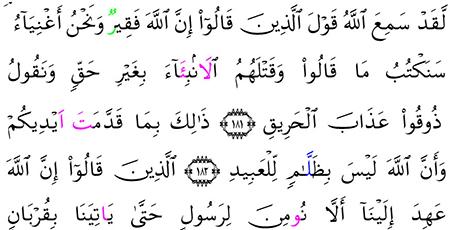 لَّقَدْ سَمِعَ ٱللَّهُ قَوْلَ ٱلَّذِينَ قَالُوٓا۟ إِنَّ ٱللَّهَ فَقِيرٌ وَنَحْنُ أَغْنِيَآءُ
سَنَكْتُبُ مَا قَالُوا۟ وَقَتْلَهُمُ ٱلَانۢبِئَآءَ بِغَيْرِ حَقٍّ وَنَقُولُ
ذُوقُوا۟ عَذَابَ ٱلْحَرِيقِ ١٨١ ذَٰلِكَ بِمَا قَدَّمَتَ ايْدِيكُمْ
وَأَنَّ ٱللَّهَ لَيْسَ بِظَلَّٰمٍ لِّلْعَبِيدِ ١٨٢ ٱلَّذِينَ قَالُوٓا۟ إِنَّ ٱللَّهَ
عَهِدَ إِلَيْنَآ أَلَّا نُومِنَ لِرَسُولٍ حَتَّىٰ يَاتِيَنَا بِقُرْبَانٍ